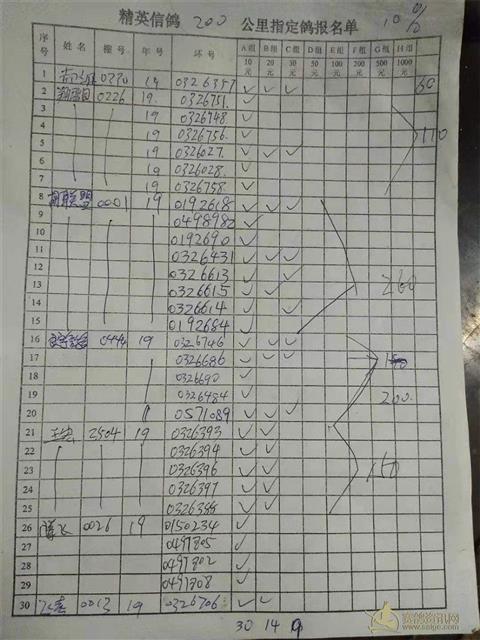 精英信鸽 200 公里指定鸽报名单 10%
序号 姓名 棚号 年号 环号 A组 10元 B组 20元 C组 30元 D组 50元 E组 100元 F组 200元 G组 500元 H组 1000元
1 0220 19 0326357 ✓ ✓ ✓ 60
2 0226 19. 0326751. ✓
3 19 0326748 ✓
4 19 0326756. ✓ 110
5 19 0326027. ✓ ✓ ✓
6 19 0326028. ✓
7 19 0326758. ✓
8 联盟 0001 19 0192618 ✓ ✓ ✓
9 0498982 ✓
10 0192690 ✓
11 0326431 ✓ ✓ ✓
12 0326613 ✓ ✓ ✓
13 0326615 ✓ ✓ ✓ 260
14 0326614 ✓ ✓
15 0192684 ✓
16 19 0326746 ✓ ✓ ✓
17 0326686 ✓ ✓ ✓
18 0326690 ✓
19 0326484 ✓ 200.
20 0571089 ✓ ✓ ✓
21 2504 19 0326393 ✓ ✓
22 0326394 ✓ ✓
23 0326396 ✓ ✓ 160
24 0326397 ✓ ✓
25 0326388 ✓ ✓
26 0026 19 0150234 ✓
27 0497805 ✓
28 0497802 ✓
29 0497808 ✓
30 0013 19 0326706 ✓ ✓
30 14
赛鸽资讯网
www.saige.com